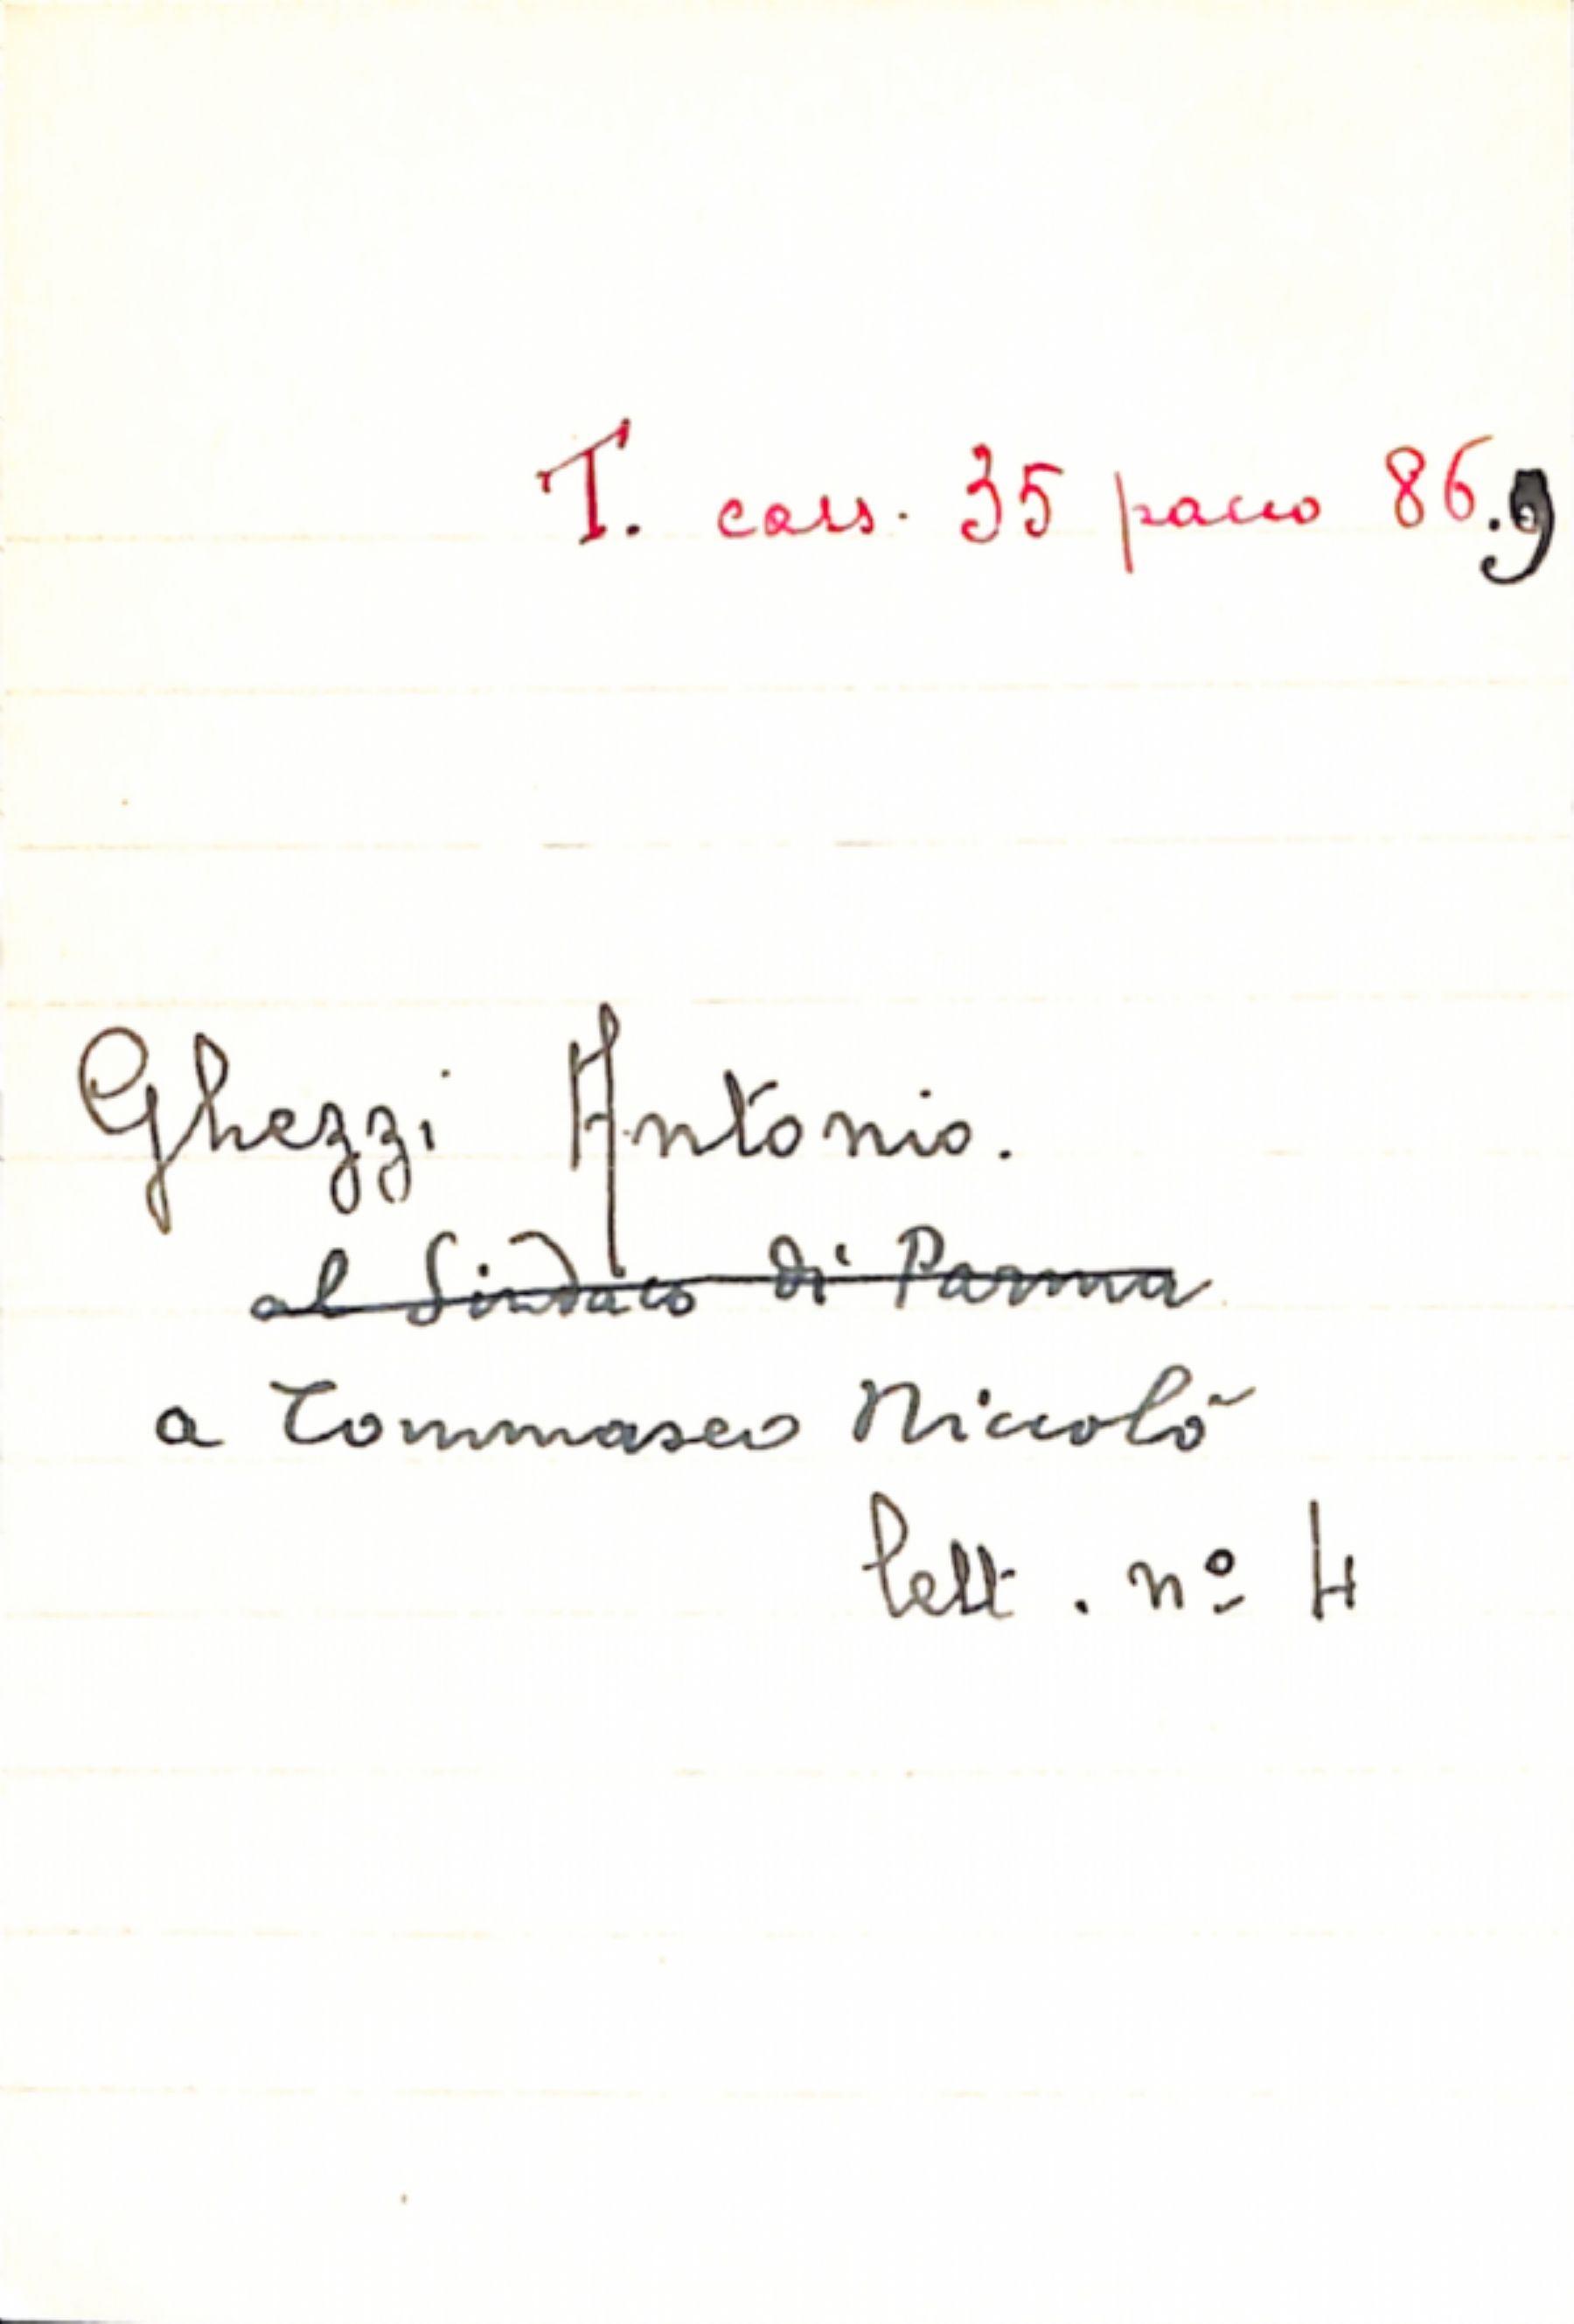 T. cass. 35 pacco 86.9
Ghezzi Antonio.
al Sindaco di Parma
a Tommaseo Niccolò
lett. nº 4